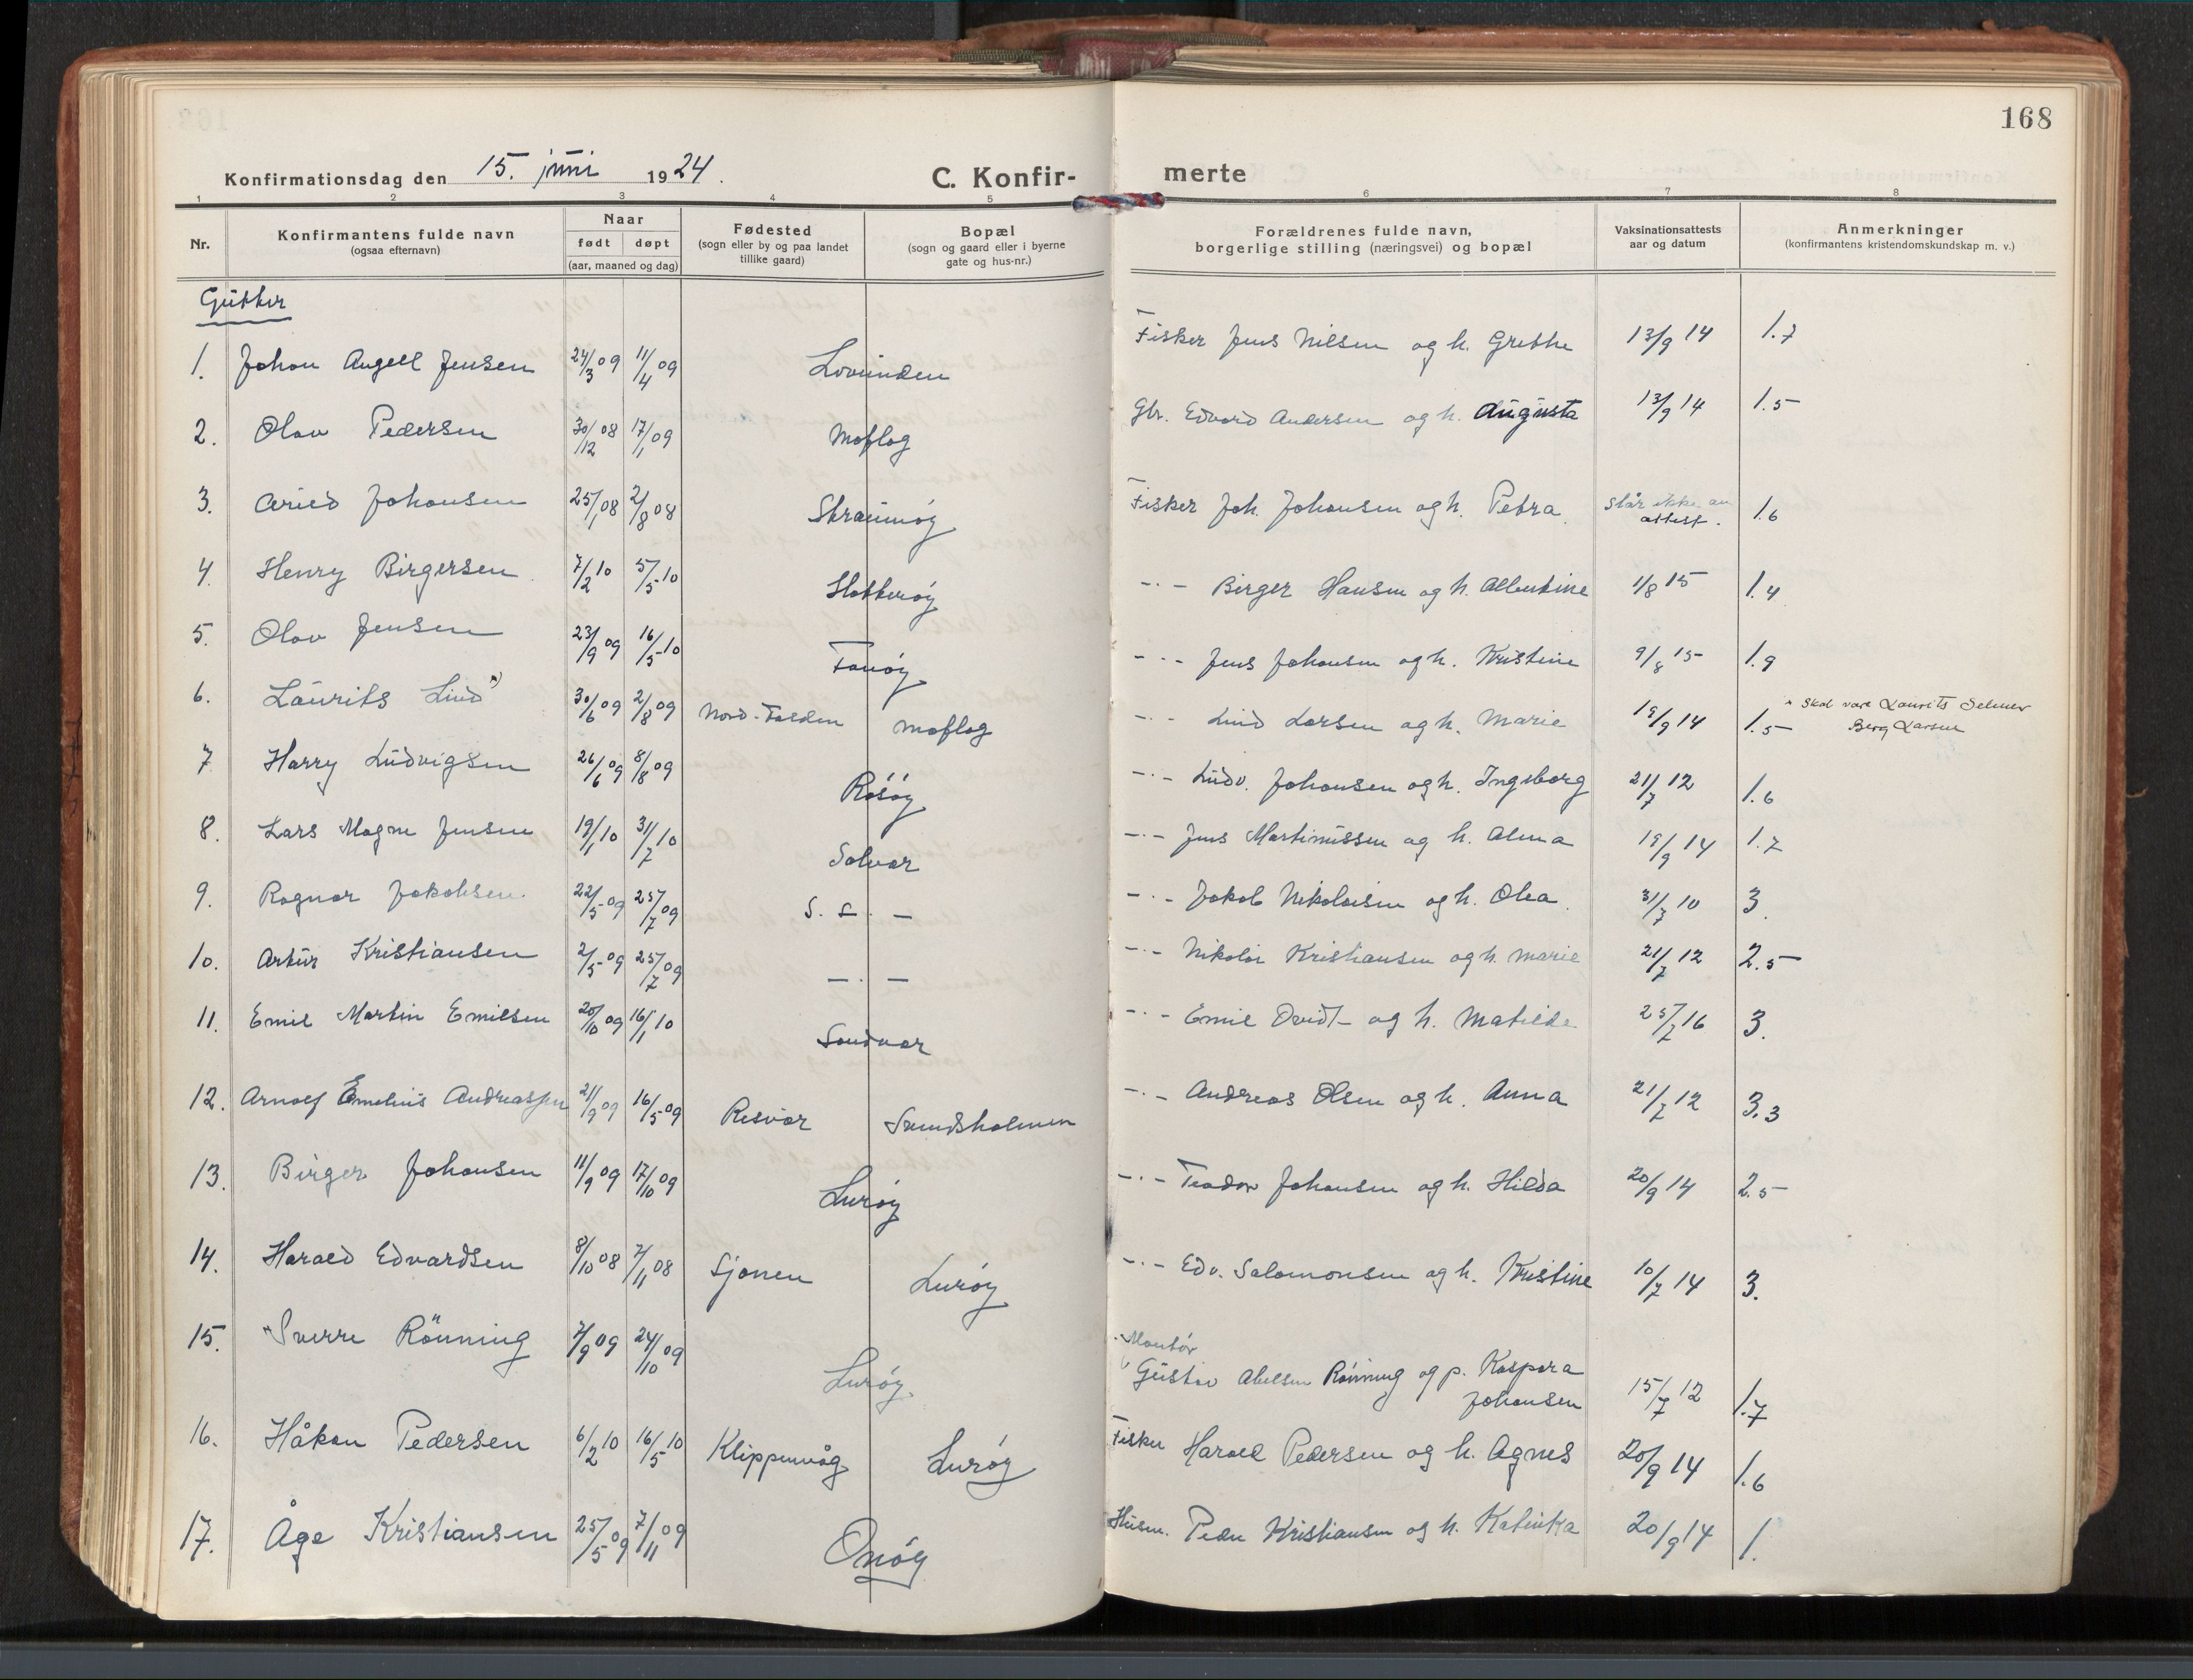 168
Konfirmationsdag den 15. juni 1924. C. Konfir- merte
1 2 3 4 5 6 7 8
Nr. Konfirmantens fulde navn (ogsaa efternavn) Naar født døpt (aar, maaned og dag) Fødested (sogn eller by og paa landet tillike gaard) Bopæl (sogn og gaard eller i byerne gate og hus-nr.) Forældrenes fulde navn, borgerlige stilling (næringsvei) og bopæl Vaksinationsattests aar og datum Anmerkninger (konfirmantens kristendomskundskap m. v.)
Gutter
1. Johan Angell Jensen 24/3 09 11/4 09 Lovunden Fisker Jens Nilsen og h. Grethe 13/9 14 1.7
2. Olav Pedersen 30/12 08 17/1 09 Moflag Gbr. Edvard Andersen og h. Augusta 13/9 14 1.5
3. Arild Johansen 25/1 08 2/8 08 Fisker Joh. Johansen og h. Petra Står ikke an
attest. 1.6
4. Henry Birgersen 7/2 10 5/5 10 Slotterøy -·- Birger Hansen og h. Albertine 1/8 15 1.4
5. Olav Jensen 23/9 09 16/5 10 Tonøy -·- Jens Johansen og h. Kristine 9/8 15 1.9
6. Laurits Lind *) 30/6 09 2/8 09 Nord-Folden Moflag -·- Lind Larsen og h. Marie 19/9 14 1.5 * Skal være Laurits Selmer
Berg Larsen
7. Harry Ludvigsen 26/6 09 8/8 09 Rósøy -·- Ludv. Johansen og h. Ingeborg 21/7 12 1.6
8. Lars Magne Jensen 19/1 10 31/7 10 Solvær -·- Jens Martinussen og h. Alma 19/9 14 1.7
9. Ragnar Jakobsen 22/5 09 25/7 09 S. S. — -·- Jakob Nikolaisen og h. Olea 31/7 10 3.
10. Artur Kristiansen 2/5 09 25/7 09 — · — -·- Nikolai Kristiansen og h. Marie 21/7 12 2.5
11. Emil Martin Emilsen 20/10 09 16/1 10 Sandvær -·- Emil Ovidt- og h. Matilde 25/7 16 3.
12. Arnolf Emelius Andreassen 21/9 09 16/5 09 Resvær Svundsholmen -·- Andreas Olsen og h. Anna 21/7 12 3.3
13. Birger Johansen 11/9 09 17/10 09 Lurøy -·- Teodor Johansen og h. Hilda 20/9 14 2.5
14. Harald Edvardsen 8/10 08 7/11 08 Sjonen Lurøy -·- Edv. Salomonsen og h. Kristine 10/7 14 3.
15. Sverre Rönning 7/9 09 24/10 09 Lurøy Montør
Gustav Abelsen Rønning og p. Kaspara
Johansen 15/7 12 1.7
16. Håkon Pedersen 6/2 10 16/5 10 Klippenvåg Lurøy Fisker Harald Pedersen og h. Agnes 20/9 14 1.6
17. Åge Kristiansen 25/5 09 7/11 09 Onøy Husm. Peder Kristiansen og h. Katinka 20/9 14 1.